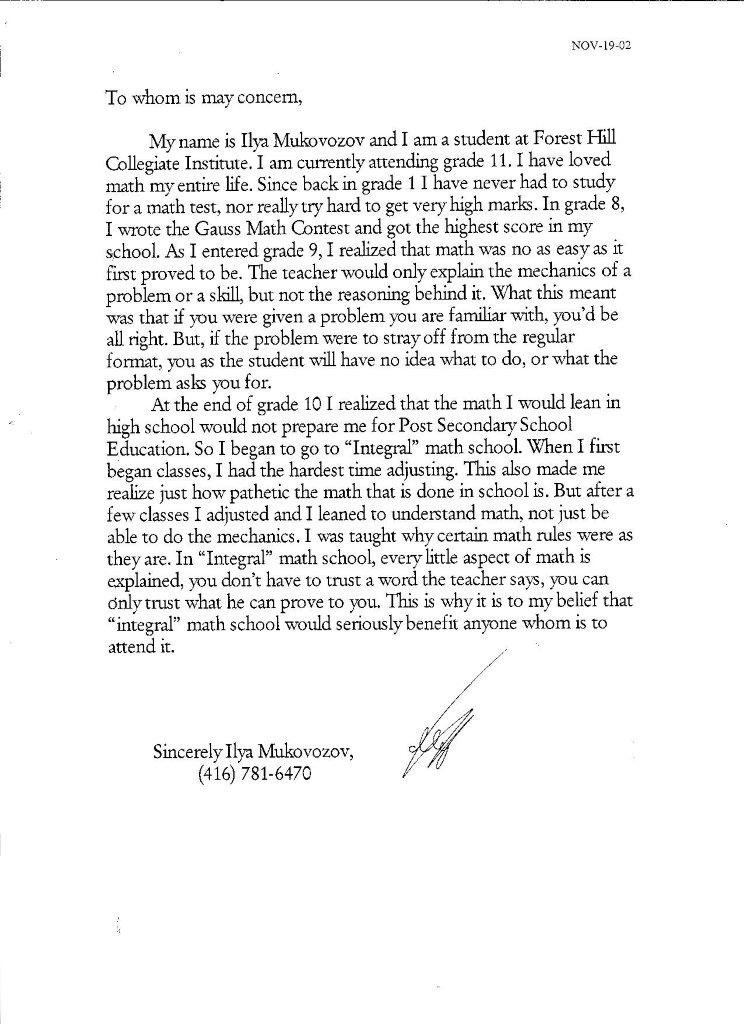 NOV-19-02
To whom is may concern,
My name is Ilya Mukovozov and I am a student at Forest Hill
Collegiate Institute. I am currently attending grade 11. I have loved
math my entire life. Since back in grade 1 I have never had to study
for a math test, nor really try hard to get very high marks. In grade 8,
I wrote the Gauss Math Contest and got the highest score in my
school. As I entered grade 9, I realized that math was no as easy as it
first proved to be. The teacher would only explain the mechanics of a
problem or a skill, but not the reasoning behind it. What this meant
was that if you were given a problem you are familiar with, you'd be
all right. But, if the problem were to stray off from the regular
format, you as the student will have no idea what to do, or what the
problem asks you for.
At the end of grade 10 I realized that the math I would lean in
high school would not prepare me for Post Secondary School
Education. So I began to go to “Integral” math school. When I first
began classes, I had the hardest time adjusting. This also made me
realize just how pathetic the math that is done in school is. But after a
few classes I adjusted and I leaned to understand math, not just be
able to do the mechanics. I was taught why certain math rules were as
they are. In “Integral” math school, every little aspect of math is
explained, you don't have to trust a word the teacher says, you can
only trust what he can prove to you. This is why it is to my belief that
“integral” math school would seriously benefit anyone whom is to
attend it.
Sincerely Ilya Mukovozov,
(416) 781-6470